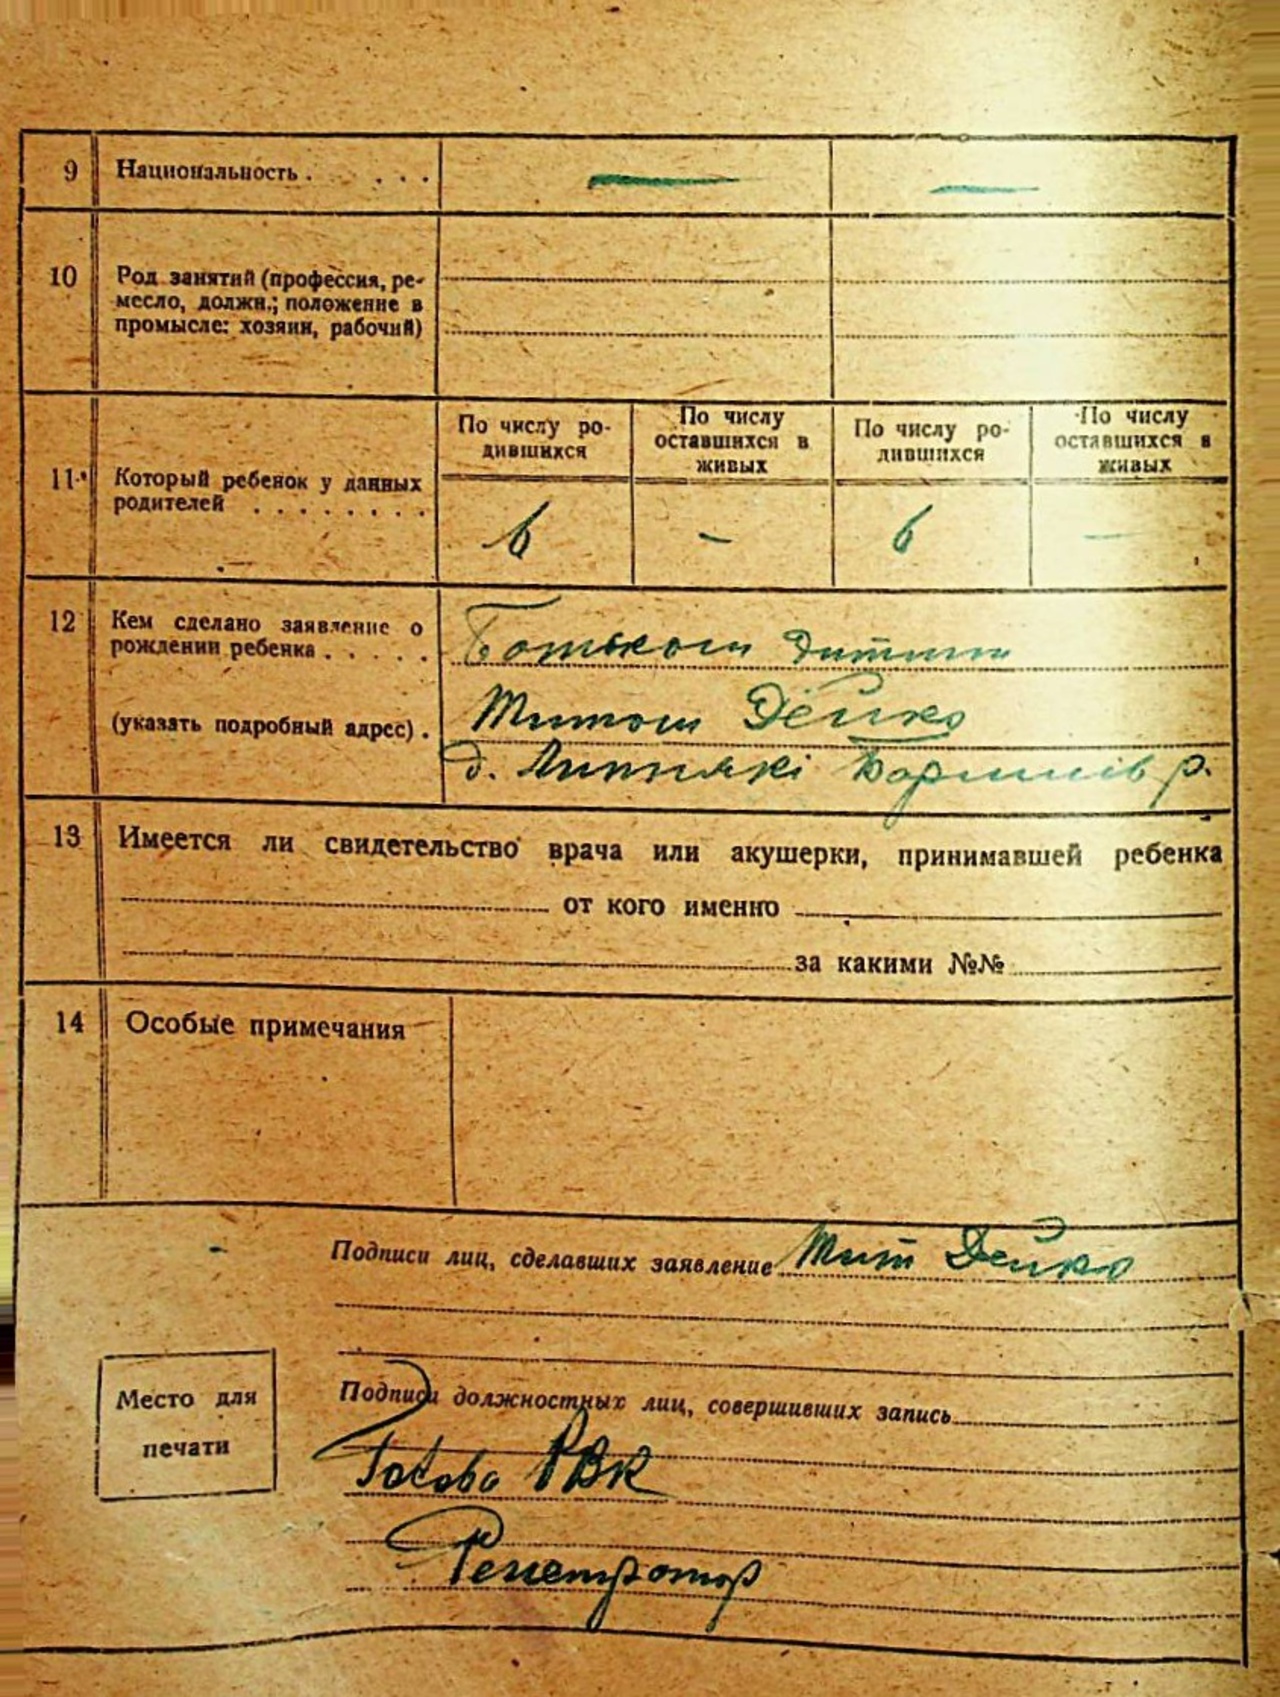 9 Национальность . . . . — —
10 Род занятий (профессия, ре-
месло, должн.; положение в
промысле: хозяин, рабочий)
По числу ро-
дившихся
По числу
оставшихся в
живых
По числу ро-
дившихся
По числу
оставшихся в
живых
11 Который ребенок у данных
родителей . . . . . . . .
6 - 6 —
12 Кем сделано заявление о
рождении ребенка . . . . .
Батьком дитини
(указать подробный адрес) .
Титом Дейко
д. Липняки р.
13 Имеется ли свидетельство врача или акушерки, принимавшей ребенка
от кого именно
за какими №№
14 Особые примечания
Подписи лиц, сделавших заявление Тит Дейко
Место для
печати
Подписи должностных лиц, совершивших запись
Голова РВК